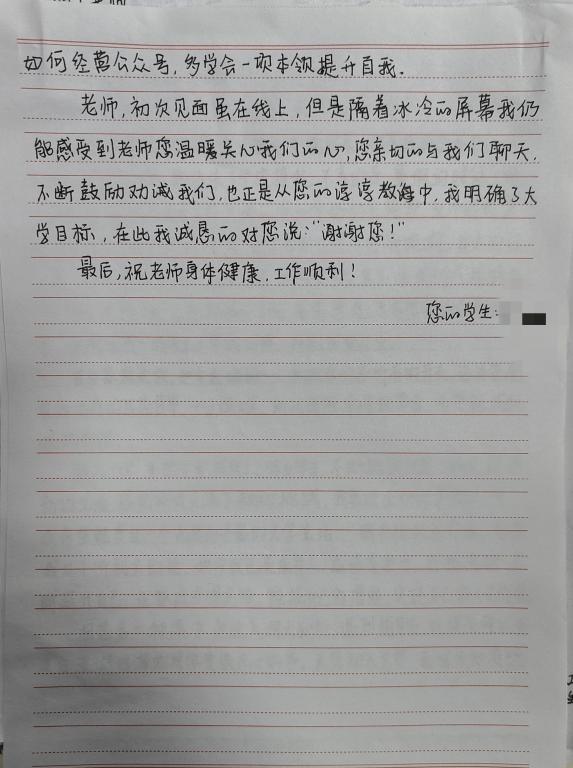 如何经营公众号,多学会一项本领提升自我.
老师,初次见面虽在线上,但是隔着冰冷的屏幕我仍
能感受到老师您温暖关心我们的心,您亲切的与我们聊天,
不断鼓励劝诫我们,也正是从您的谆谆教诲中,我明确了大
学目标,在此我诚恳的对您说:“谢谢您!”
最后,祝老师身体健康,工作顺利!
您的学生: